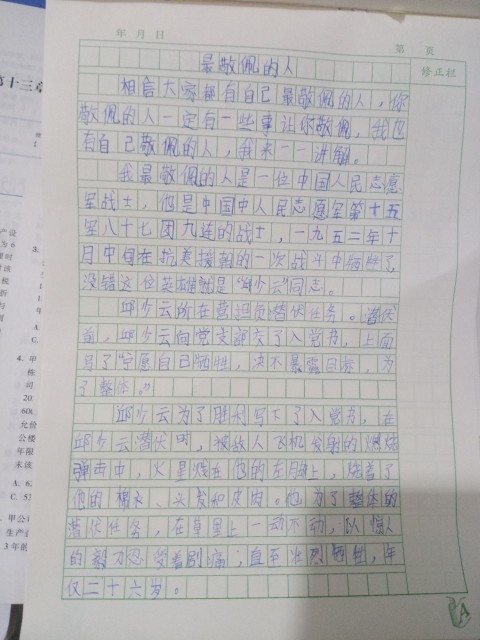 年 月 日
第 页
修正栏
最敬佩的人
相信大家都有自己最敬佩的人，你
敬佩的人一定有一些事让你敬佩，我也
有自己敬佩的人，我来一一讲解。
我最敬佩的人是一位中国人民志愿
军战士，他是中国中人民志愿军第十五
军八十七团九连的战士，一九五二年十
月中旬在抗美援朝的一次战斗中牺牲了，
没错这位英雄就是“邱少云”同志。
邱少云所在营担负潜伏任务。潜伏
前，邱少云向党支部交了入党书，上面
写了“宁愿自己牺牲，决不暴露目标，为
了整体。”
邱少云为了胜利写下了入党书，在
邱少云潜伏时，被敌人飞机发射的燃烧
弹击中，火星溅在他的左脚上，烧着了
他的棉衣、头发和皮肉。他为了整体的
潜伏任务，在草里上一动不动，以惊人
的毅力忍受着剧痛；直至壮烈牺牲，年
仅二十六岁。
第十三章
3.
A
C
4. 甲
栋
司
20
600
允价
公楼
年限
未该
A. 6
C. 53
甲公司
生产
3 年的